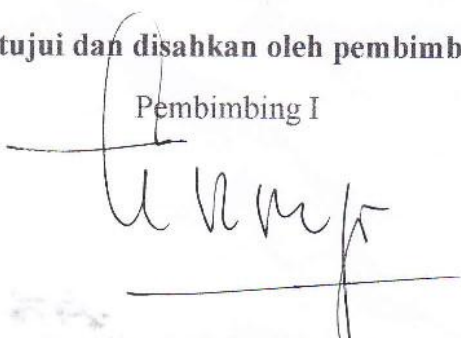 tujui dan disahkan oleh pembimb
Pembimbing I